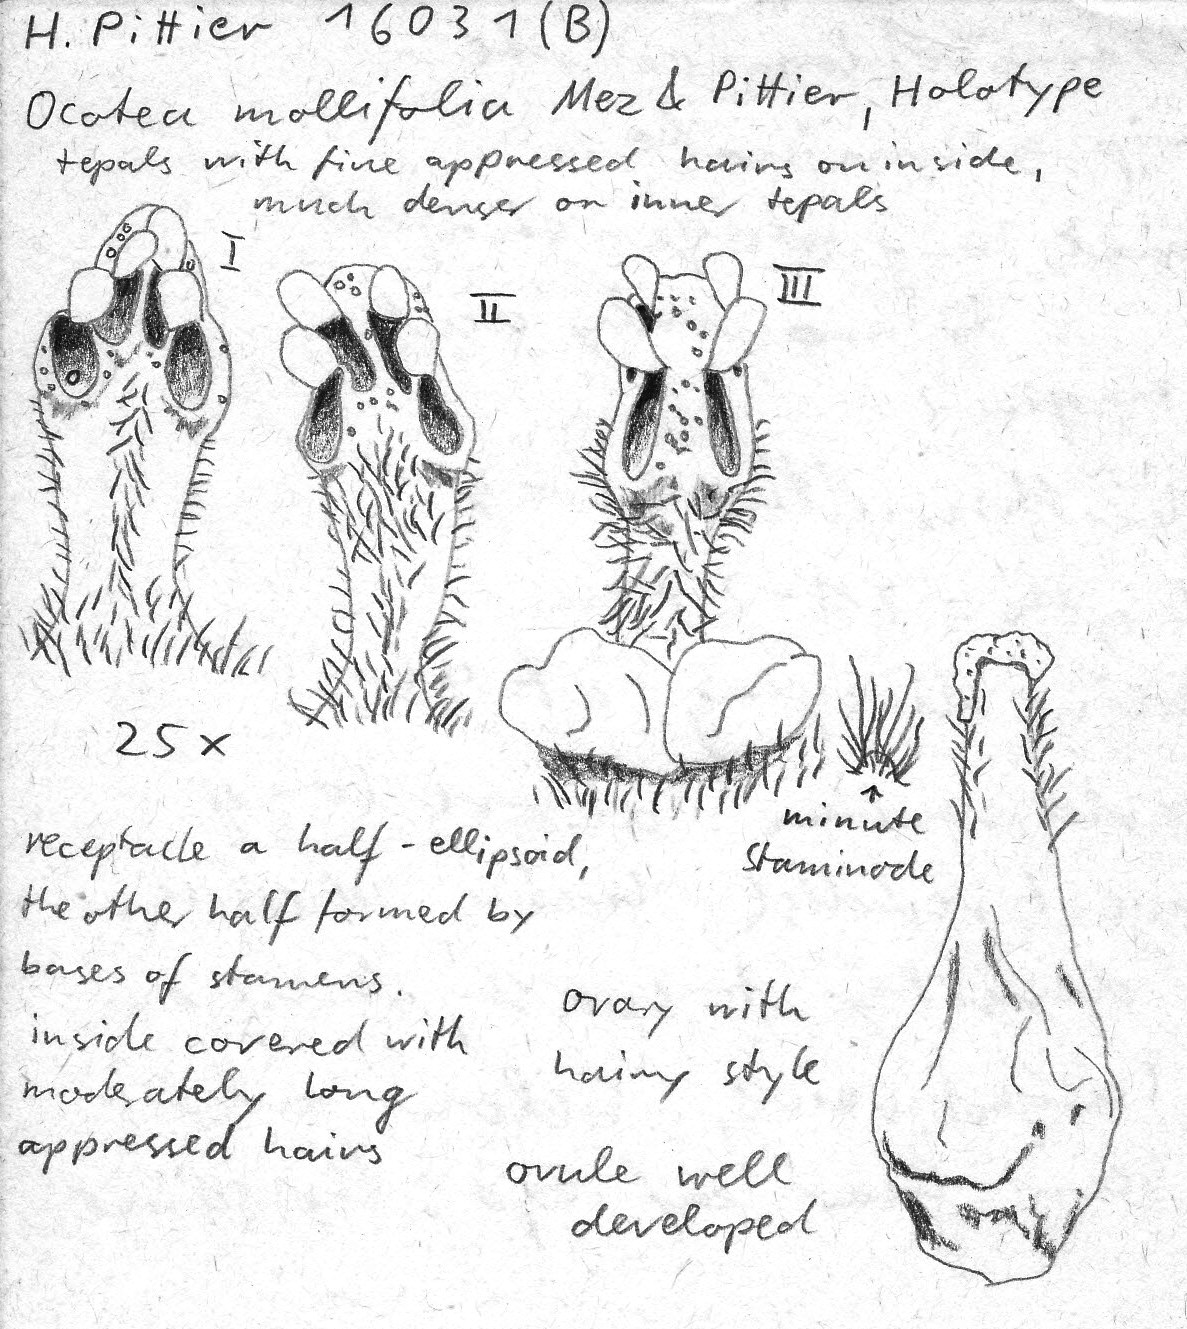 H. Pittier 16031 (B)
Ocotea mollifolia Mez & Pittier, Holotype
tepals with fine appressed hairs on inside,
much denser on inner tepals
I
II
III
25 x
minute
staminode
receptacle a half-ellipsoid,
the other half formed by
bases of stamens.
inside covered with
moderately long
appressed hairs
ovary with
hairy style
ovule well
developed